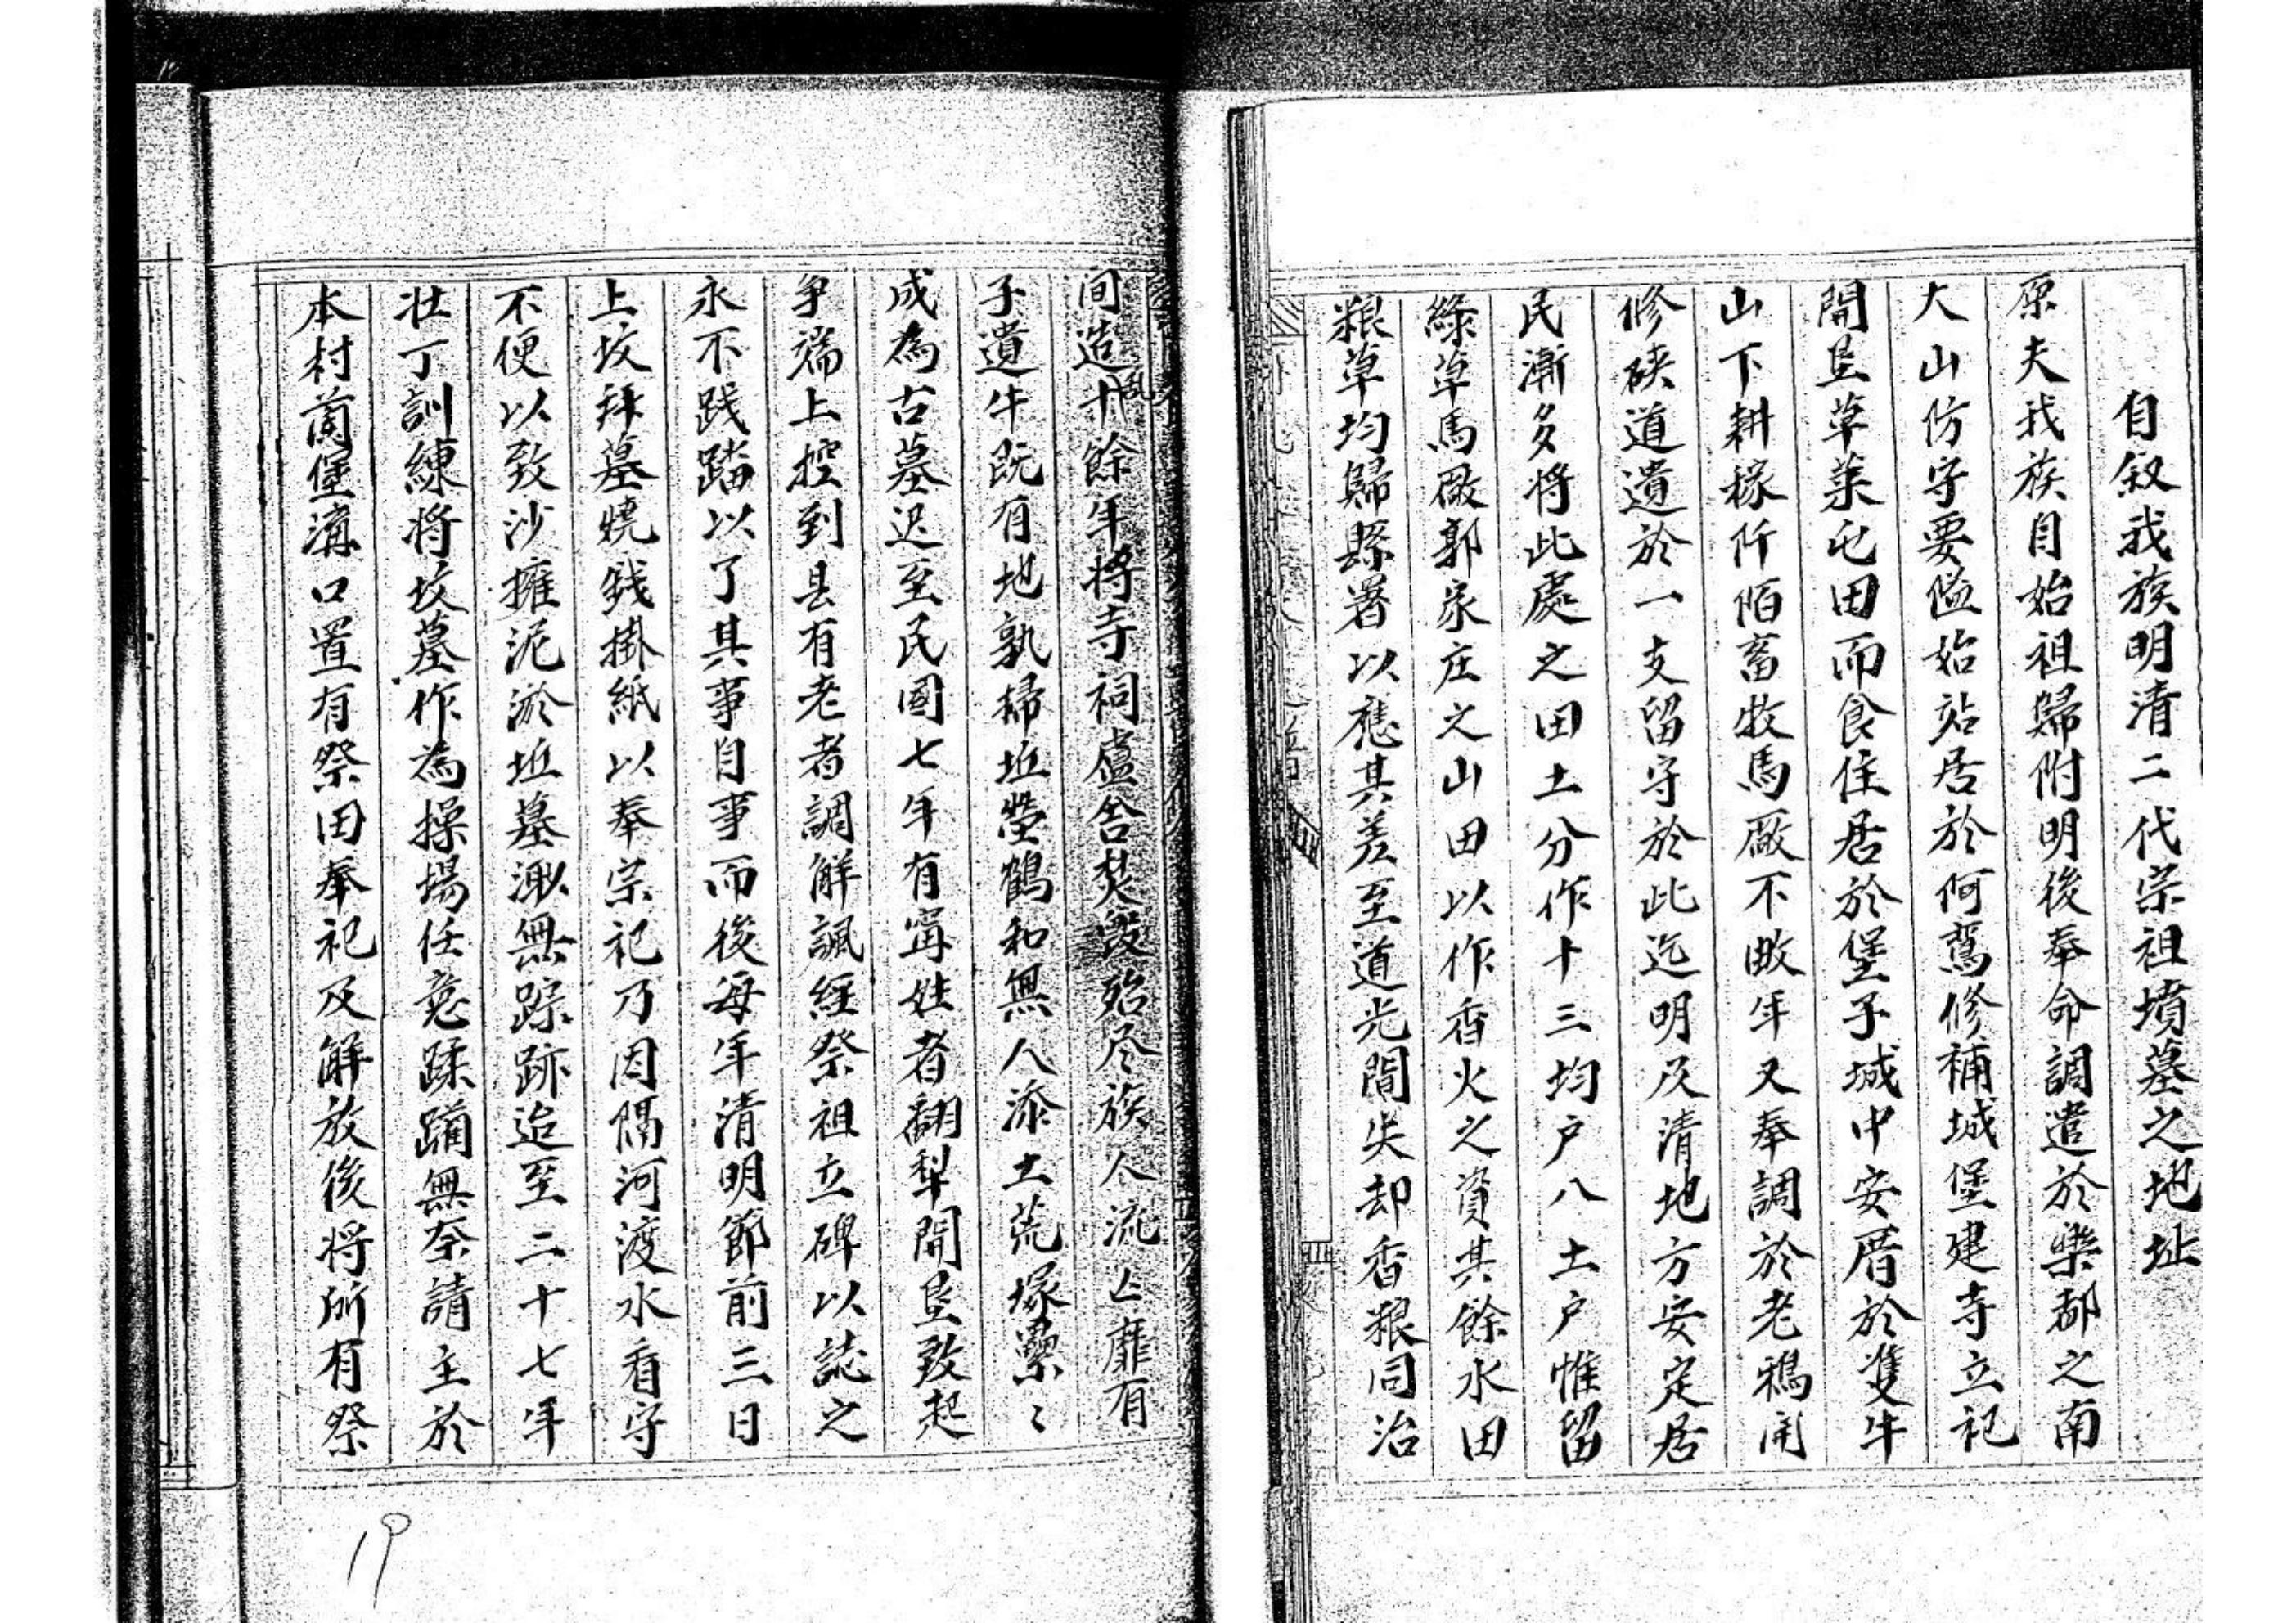 自叙我族明清二代宗祖墳墓之地址
原夫我族自始祖歸附明後奉命調遣於樂都之南
大山仿守要隘始站居於何鸾修補城堡建寺立祀
開垦草菜屯田而食住居於堡子城中安厝於隻牛
山下耕稼阡陌畜牧馬厰不畝年又奉調於老鴉闹
修硖道遺於一支留守於此迄明及清地方安定居
民漸多将此處之田土分作十三均户八土户惟留
綠草馬厰郭家庄之山田以作香火之資其餘水田
粮草均歸縣署以應其差至道光間失却香粮同治
间造乱十餘年将寺祠盧舍焚毀殆尽族人流亡靡有
孑遺牛既有地孰掃坵塋鶴和無人添土荒塚纍〻
成為古墓迟至民國七年有甯姓者翻犁開垦致起
争端上控到县有老者調解諷經祭祖立碑以誌之
永不践踏以了其事自事而後每年清明節前三日
上坟拜墓燒錢掛紙以奉宗祀乃因隔河渡水看守
不便以致沙擁泥淤坵墓渺無踪跡迨至二十七年
壮丁訓練将坟墓作為操場任意蹂踊無奈請主於
本村蔺堡溝口置有祭田奉祀及解放後将所有祭
19